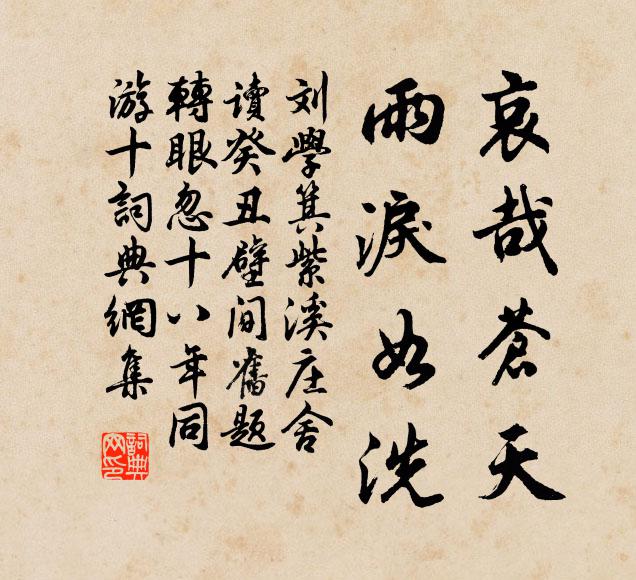 哀哉蒼天
雨淚如洗
刘學箕紫溪庄舍
讀癸丑壁间舊题
轉眼忽十八年同
游十詞典網集
詞典网印